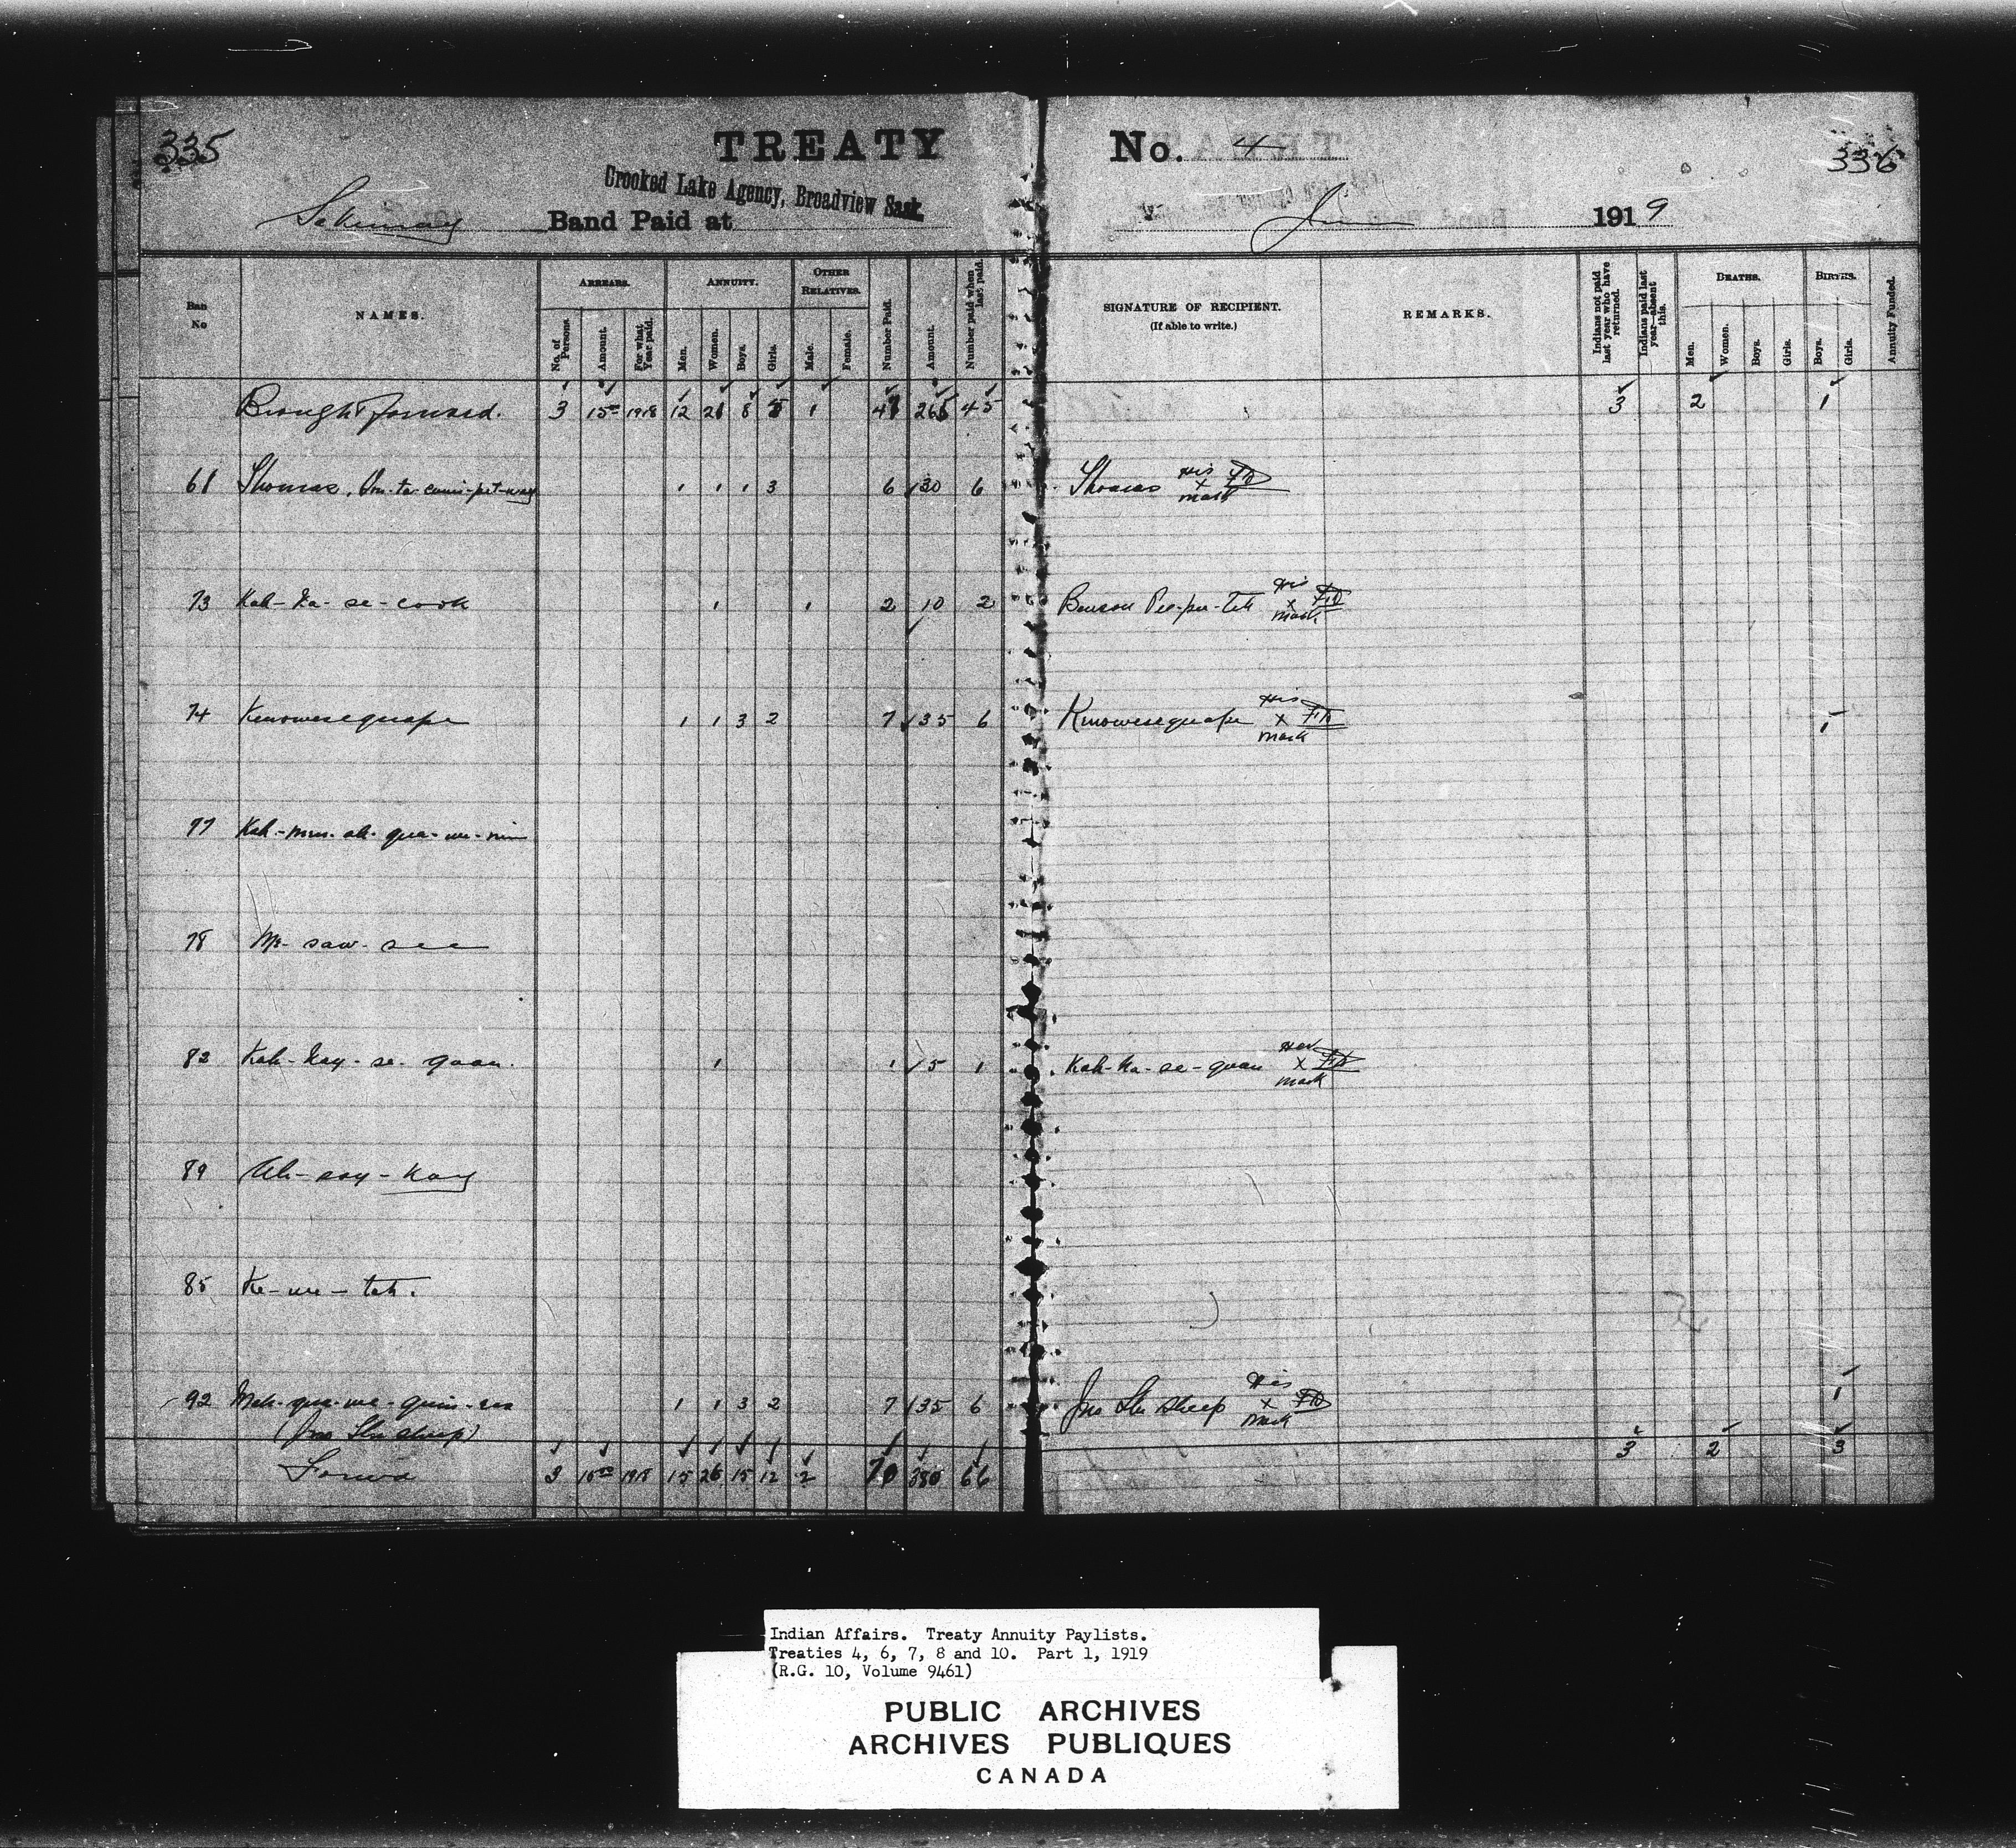 335
TREATY No. 4
336
Crooked Lake Agency, Broadview Sask.
Sakimay Band Paid at
June 1919
Ban No
NAMES.
ARREARS.
No. of Persons.
Amount.
For what Year paid.
ANNUITY.
Men.
Women.
Boys.
Girls.
OTHER RELATIVES.
Male.
Female.
Number Paid.
Amount.
Number paid when last paid.
SIGNATURE OF RECIPIENT.
(If able to write.)
REMARKS.
Indians not paid last year who have returned.
Indians paid last year—absent this.
DEATHS.
Men.
Women.
Boys.
Girls.
BIRTHS.
Boys.
Girls.
Annuity Funded.
Brought forward. 3 15 1918 12 21 8 5 1 47 265 45 3 2 1
61 Thomas 1 1 1 3 6 30 6 Thomas His x mark
73 Kah-ka-se-cook 1 1 2 10 2 Benson Pee-pee-tek His x mark
74 Kenowesequape 1 1 3 2 7 35 6 Kenowesequape His x mark 1
77 Kah-mus-ah-qua-we-nin
78 Me-saw-see
82 Kah-kay-se-quan. 1 1 5 1 Kah-ka-se-quan Her x mark
89 Ah-say-kay
85 Ke-we-tah.
92 Meh-qua-we-quin-ses 1 1 3 2 7 35 6 Jno His x mark 1
(Jno
Forwd 3 15 1918 15 26 15 12 2 70 380 66 3 2 3
Indian Affairs. Treaty Annuity Paylists.
Treaties 4, 6, 7, 8 and 10. Part 1, 1919
(R.G. 10, Volume 9461)
PUBLIC ARCHIVES
ARCHIVES PUBLIQUES
CANADA